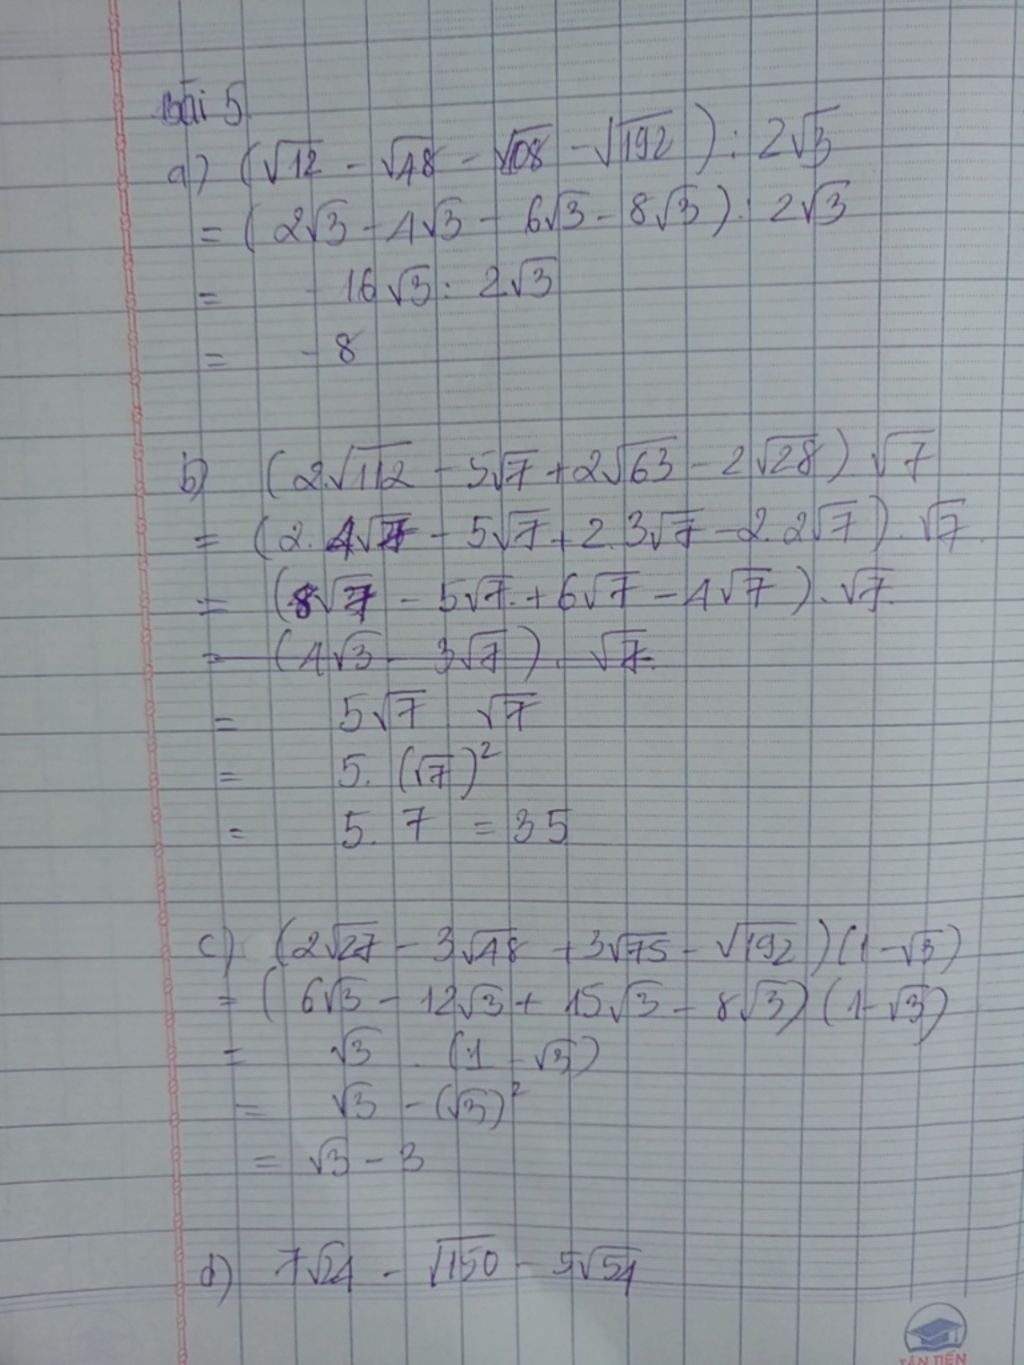 Bài 5
a) (√12 - √48 - √108 - √192) : 2√3
= (2√3 - 4√3 - 6√3 - 8√3) : 2√3
= - 16√3 : 2√3
= - 8
b) (2√112 - 5√7 + 2√63 - 2√28) √7
= (2. 4√7 - 5√7 + 2. 3√7 - 2. 2√7) . √7
= (8√7 - 5√7 + 6√7 - 4√7) . √7
= (4√3 - 3√7) . √7
= 5√7 √7
= 5. (√7)²
= 5. 7 = 35
c) (2√27 - 3√48 + 3√75 - √192)(1 - √3)
= (6√3 - 12√3 + 15√3 - 8√3)(1 - √3)
= √3 . (1 - √3)
= √3 - (√3)²
= √3 - 3
d) 7√24 - √150 - 5√54
TÂN TIẾN